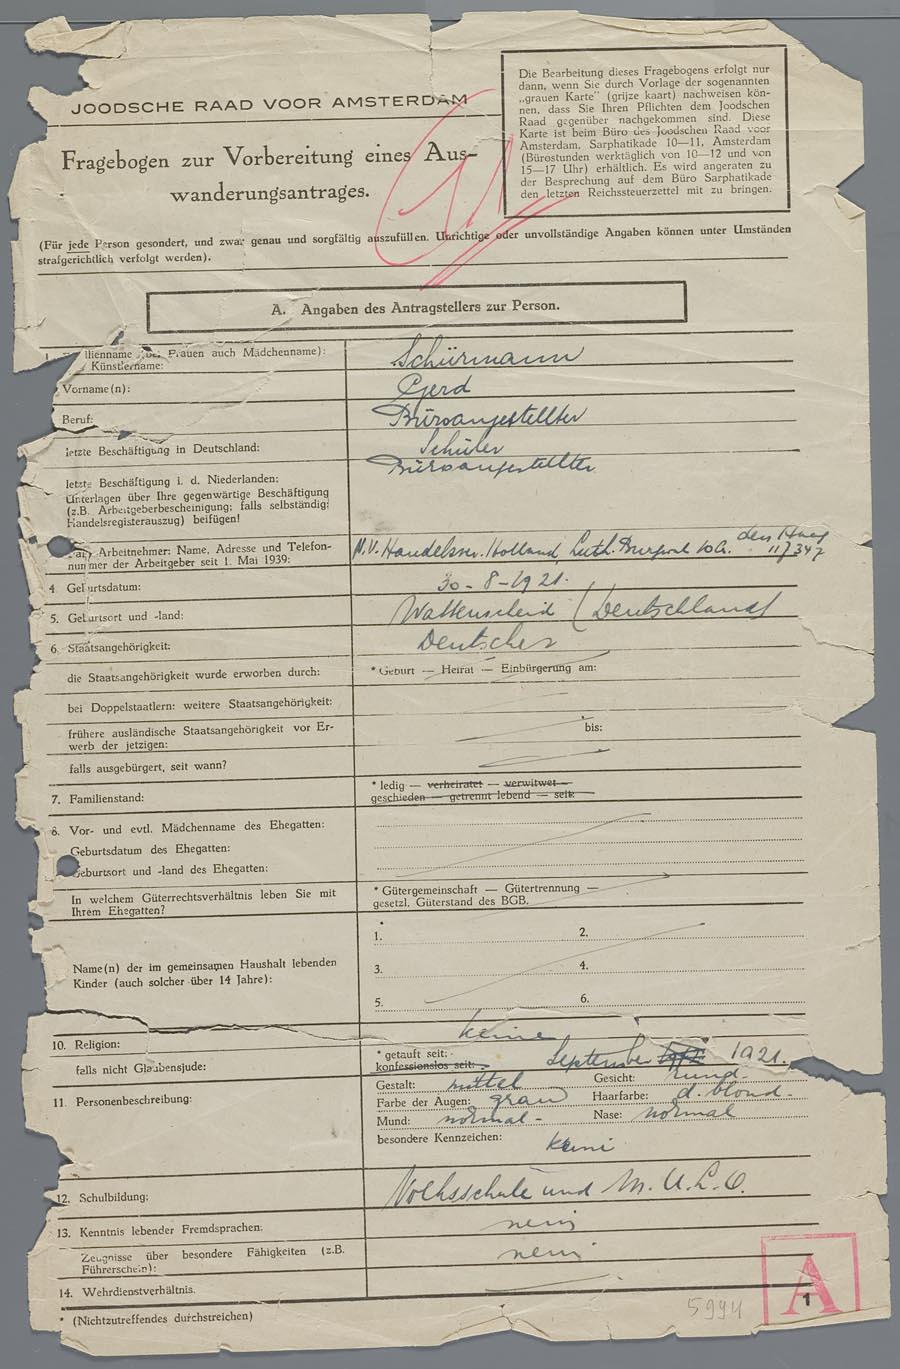 JOODSCHE RAAD VOOR AMSTERDAM
Fragebogen zur Vorbereitung eines Aus-
wanderungsantrages.
Die Bearbeitung dieses Fragebogens erfolgt nur
dann, wenn Sie durch Vorlage der sogenannten
„grauen Karte" (grijze kaart) nachweisen kön-
nen, dass Sie Ihren Pflichten dem Joodschen
Raad gegenüber nachgekommen sind. Diese
Karte ist beim Büro des Joodschen Raad voor
Amsterdam, Sarphatikade 10—11, Amsterdam
(Bürostunden werktäglich von 10—12 und von
15—17 Uhr) erhältlich. Es wird angeraten zu
der Besprechung auf dem Büro Sarphatikade
den letzten Reichssteuerzettel mit zu bringen.
(Für jede Person gesondert, und zwar genau und sorgfältig auszufüllen. Unrichtige oder unvollständige Angaben können unter Umständen
strafgerichtlich verfolgt werden).
A. Angaben des Antragstellers zur Person.
1. ilienname (bei Frauen auch Mädchenname): Schürmann
Künstlername:
Vorname(n): Gerd
Beruf: Büroangestellter
letzte Beschäftigung in Deutschland: Schüler
letzte Beschäftigung i. d. Niederlanden: Büroangestellter
Unterlagen über Ihre gegenwärtige Beschäftigung
(z.B. Arbeitgeberbescheinigung; falls selbständig:
Handelsregisterauszug) beifügen!
Arbeitnehmer: Name, Adresse und Telefon-
nummer der Arbeitgeber seit 1. Mai 1939: N.V. Holland, Luth. den Haag
4. Geburtsdatum: 30-8-1921.
5. Geburtsort und -land: Wattenscheid (Deutschland)
6. Staatsangehörigkeit: Deutscher
die Staatsangehörigkeit wurde erworben durch: * Geburt — Heirat — Einbürgerung am:
bei Doppelstaatlern: weitere Staatsangehörigkeit:
frühere ausländische Staatsangehörigkeit vor Er-
werb der jetzigen: bis:
falls ausgebürgert, seit wann?
7. Familienstand: * ledig — verheiratet — verwitwet —
geschieden — getrennt lebend — seit:
8. Vor- und evtl. Mädchenname des Ehegatten:
Geburtsdatum des Ehegatten:
Geburtsort und -land des Ehegatten:
In welchem Güterrechtsverhältnis leben Sie mit
Ihrem Ehegatten?
* Gütergemeinschaft — Gütertrennung —
gesetzl. Güterstand des BGB.
1. 2.
Name(n) der im gemeinsamen Haushalt lebenden
Kinder (auch solcher über 14 Jahre):
3. 4.
5. 6.
10. Religion: keine
falls nicht Glaubensjude: * getauft seit:
konfessionslos seit: September 1921.
11. Personenbeschreibung: Gestalt: mittel Gesicht: rund
Farbe der Augen: grau Haarfarbe: d. blond
Mund: normal Nase: normal
besondere Kennzeichen: keine
12. Schulbildung: Volksschule und M.U.L.O.
13. Kenntnis lebender Fremdsprachen: nein
Zeugnisse über besondere Fähigkeiten (z.B.
Führerschein): nein
14. Wehrdienstverhältnis.
* (Nichtzutreffendes durchstreichen)
5994
A
1